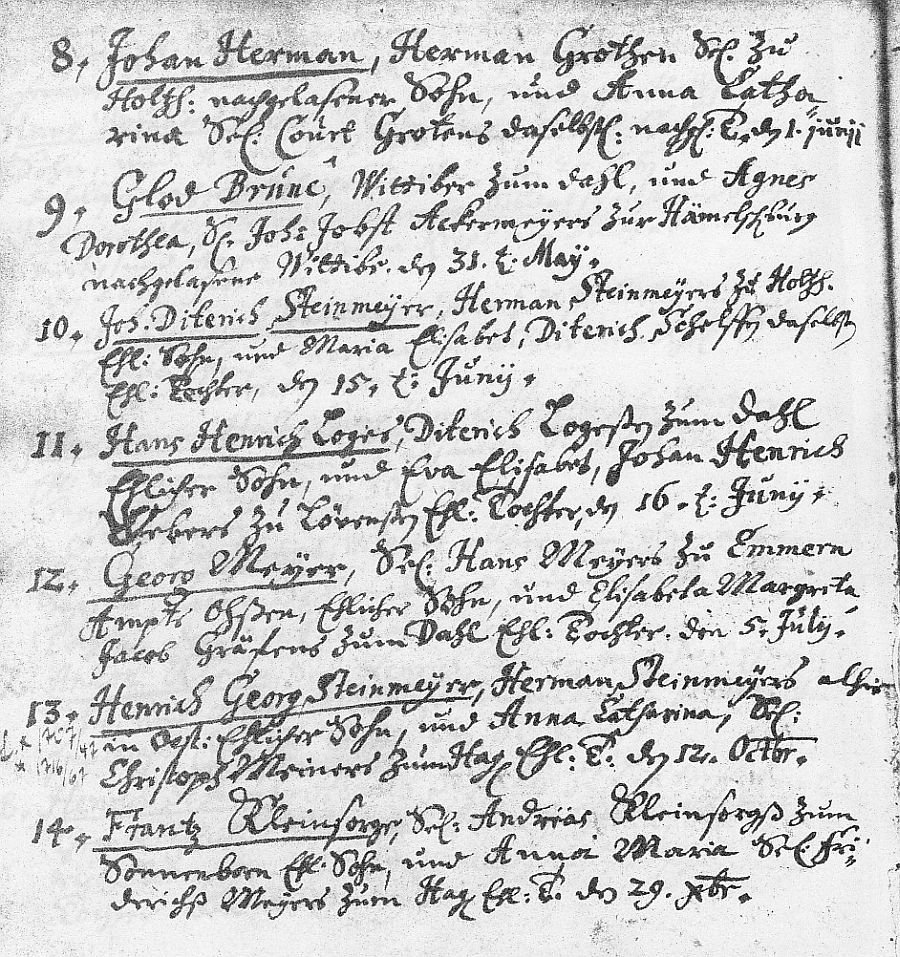 8, Johan Herman, Herman Grothen Sel: Zu
Holtzh: nachgelasener Sohn, und Anna Catha=
rina Sel: Court Grotens daselbst: nachgl: T. den 1. Junij
9, Glod Brüne, Wittiber Zum dahl, und Agnes
Dorothea, S: Joh: Jobst Ackermeyers Zur Hämelschburg
nachgelasene Wittibe. den 31. t: May.
10, Joh: Diterich Steinmeyer, Herman Steinmeyers Zu Holtzh.
Ehl: Sohn, und Maria Elisabet, Diterich daselbst
Ehl: Tochter, den 15. t: Junij.
11, Hans Henrich Loges, Diterich Logeßen Zum dahl
Ehlicher Sohn, und Eva Elisabet, Johan Henrich
Webers Zu Lövensen Ehl: Tochter, den 16. t: Junij.
12, Georg Meyer, Sel: Hans Meyers Zu Emmern
Ampts Ohßen, Ehlicher Sohn, und Elisabeta Margreta
Jacob Gräfens Zum Dahl Ehl: Tochter. den 5. Julij.
13, Henrich Georg Steinmeyer, Herman Steinmeyers alhie
in Oest: Ehlicher Sohn, und Anna Catharina, Sel:
Christoph Meiners Zum Hag, Ehl: T: den 12. Octbr.
14, Frantz Kleinsorge, Sel: Andreas Kleinsorgß Zum
Sonnenborn Ehl: Sohn, und Anna Maria Sel: Fri=
derichß Meyers Zum Hag, Ehl: T. den 29. Xbr.